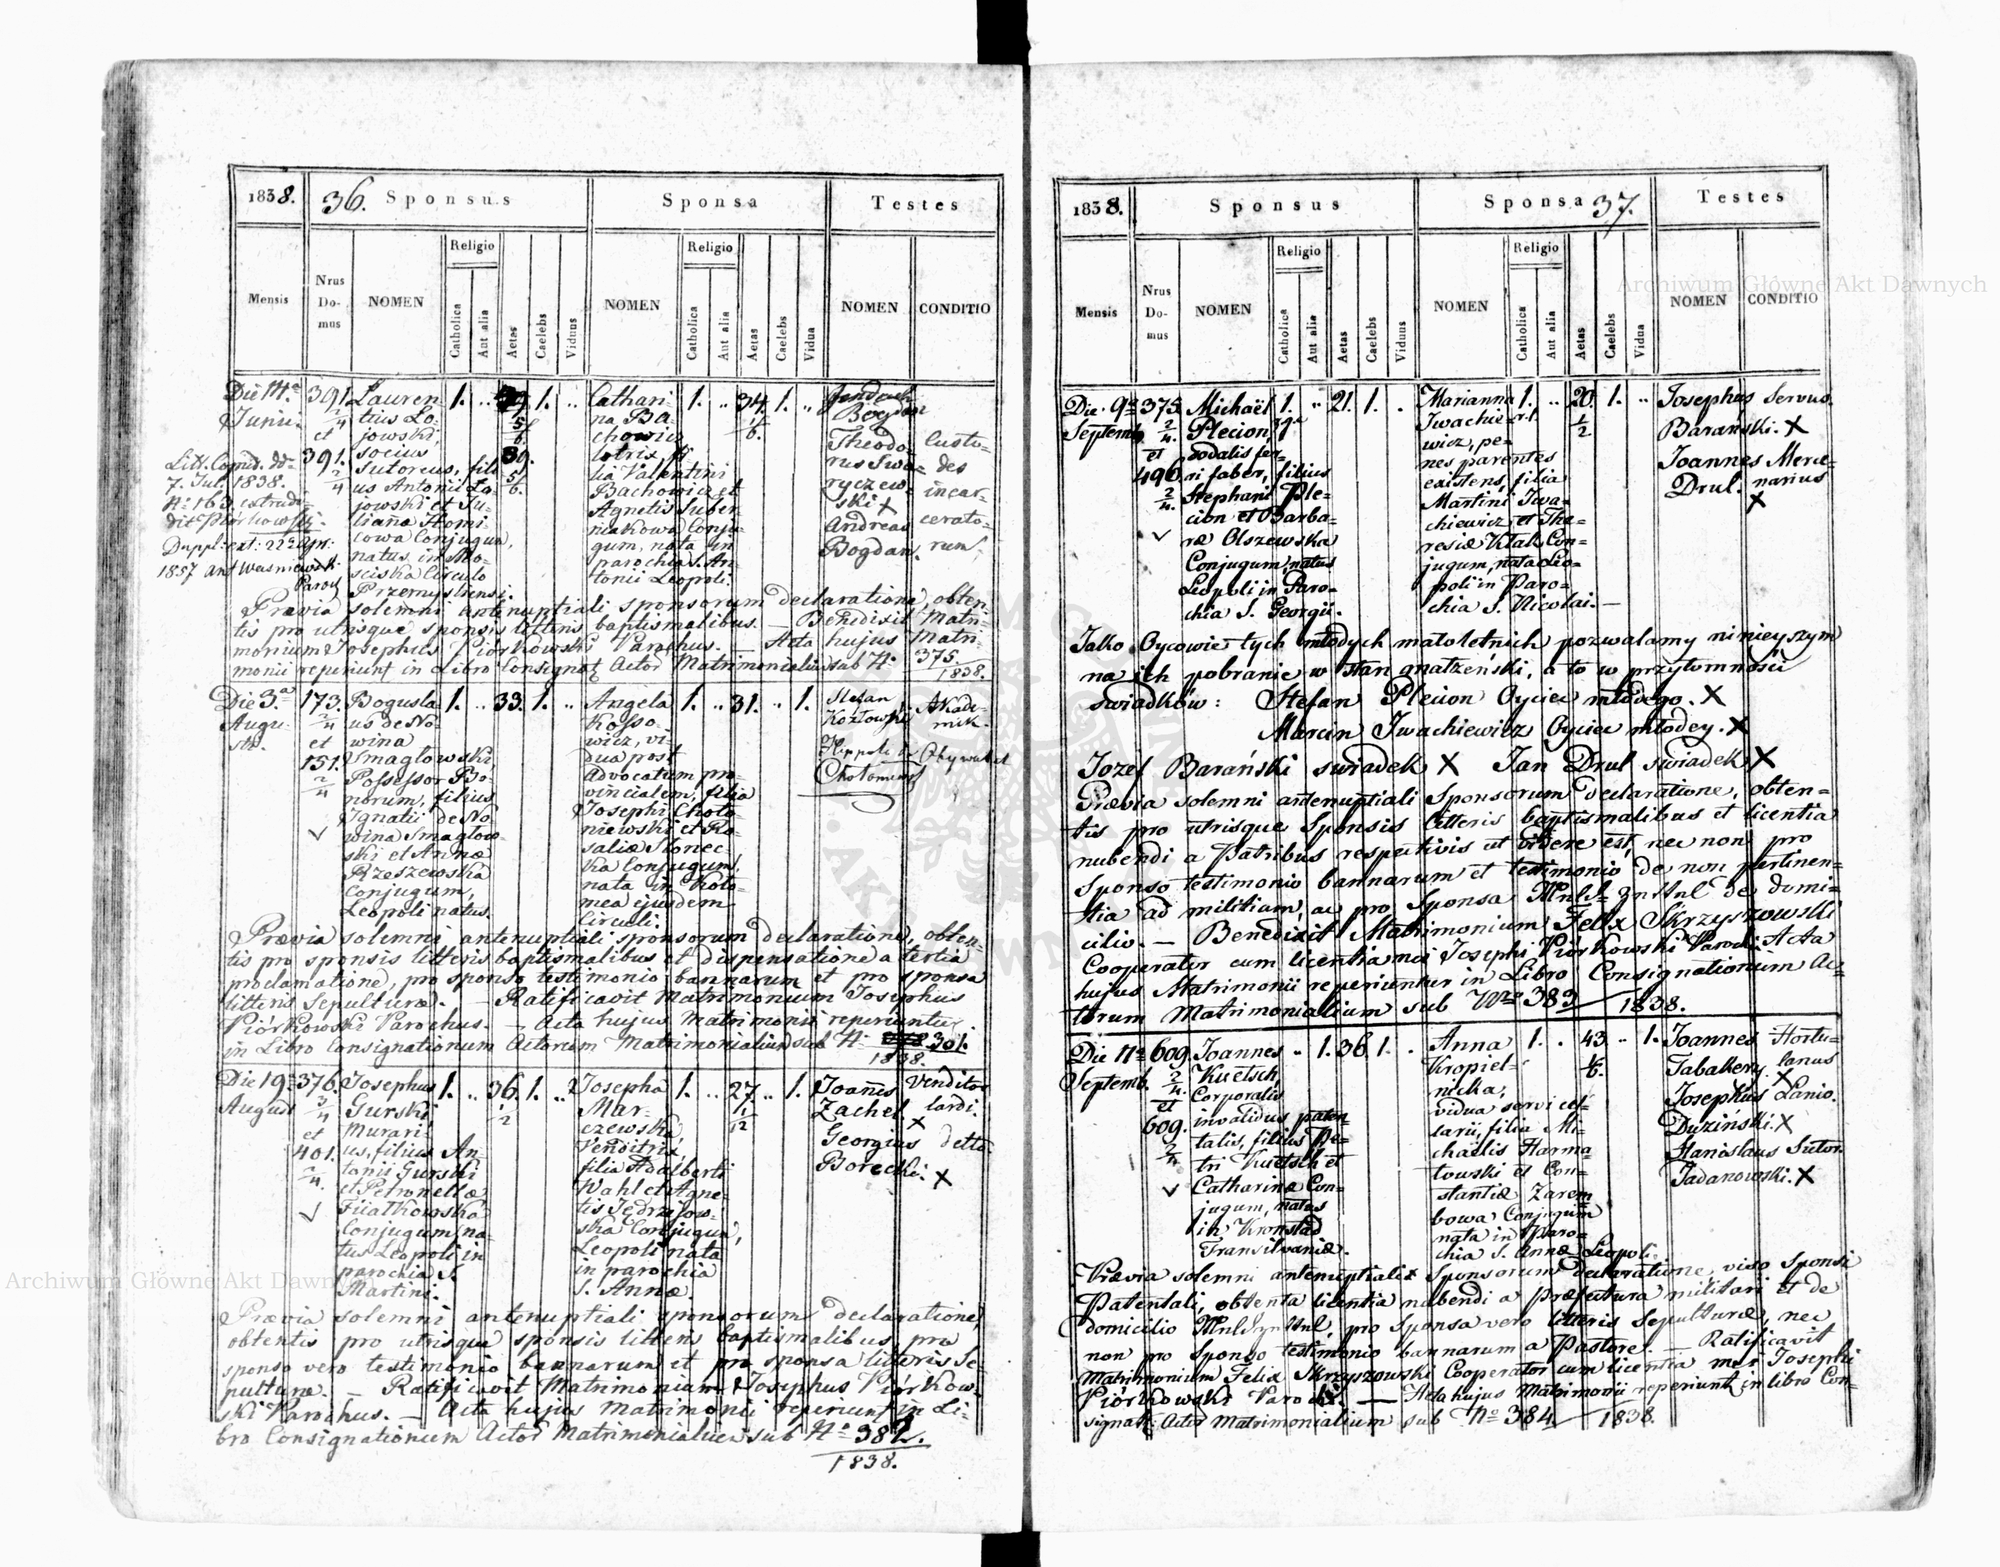 1838. 36. Sponsus Sponsa Testes
Mensis Nrus Domus NOMEN Religio Catholica Aut alia Aetas Caelebs Viduus NOMEN Religio Catholica Aut alia Aetas Caelebs Vidua NOMEN CONDITIO
Die 14a
Junii
391.
2/4
et
391.
2/4
Lauren
tius Lo-
jowski,
socius
Sutoreus, fili
us Antonii Lo-
jowski et Ju-
lianæ Homi
cowa Conjugum,
natus in Mo-
sciska Circulo
Przemysliensi.
1. .. 39. 5/6 1. ..
39.
5/6.
Cathari
na Ba-
chowicz
lotrix, fi-
lia Valentini
Bachowicz et
Agnetis Suber-
niakowa Conju-
gum, nata in
parochia S. An-
tonii Leopoli.
1. .. 34. 1/6. 1. ..
Bogdan
Theodo-
rus Swa-
ryczew-
ski X
Andreas
Bogdan.
Custo-
des
incar-
cerato-
rum,
7. Jul. 1838.
No 163 extradi-
dit Piórkowski.
Prævia solemni antenuptiali sponsorum declaratione, obten-
tis pro utrisque sponsis litteris baptismalibus. — Benedixit Matri-
monium Josephus Piórkowski Parochus. — Acta hujus Matri-
monii reperiunt in Libro Consignat Actor Matrimonialium sub No 375
1838.
Die 3a
Augu-
sti.
173.
2/4
et
151.
2/4
Bogusla
us de No-
wina
Smaglowski,
Possessor Bo-
norum, filius
Ignatii de No-
wina Smaglow-
ski et Annæ
Rzeszewska
Conjugum,
Leopoli natus.
1. .. 33. 1. ..
Angela
Kosso-
wicz, vi-
dua post
Advocatum pro-
vincialem, filia
Josephi Choto-
niewski et Ro-
saliæ Slonec-
ka Conjugum,
nata in Koto-
mea ejusdem
Circuli.
1. .. 31. .. 1.
Stefan
Kozłowski
Akade-
mik.
Prævia solemni antenuptiali sponsorum declaratione, obten-
tis pro sponsis litteris baptismalibus et dispensatione a tertia
proclamatione, pro sponso testimonio bannarum et pro sponsa
litteris Sepulturæ. — Ratificavit Matrimonium Josephus
Piórkowski Parochus. — Acta hujus Matrimonii reperiuntur
in Libro Consignationum Actorum Matrimonialium sub No 301.
1838.
Die 19a
Augusti
376.
3/4
et
401.
2/4.
Josephus
Gurski
Murari-
us, filius An-
tonii Gurski
et Petronellæ
Fiiałkowska
Conjugum, na-
tus Leopoli in
parochia S.
Martini.
1. .. 36. 1/2 1. ..
Josepha
Mar-
czewska,
Venditrix,
filia Adalberti
Wahl et Agne-
tis Jędrzejow-
ska Conjugum,
Leopoli nata
in parochia
S. Annæ.
1. .. 27. 1/12 .. 1.
Joannes
Zachel.
X
Georgius
Borecki. X
Venditor
lardi.
detto.
Prævia solemni antenuptiali sponsorum declaratione,
obtentis pro utrisque sponsis litteris baptismalibus, pro
sponso vero testimonio bannarum et pro sponsa litteris Se-
pulturæ. — Ratificavit Matrimonium Josephus Piórkow-
ski Parochus. — Acta hujus Matrimonii reperiunt in Li-
bro Consignationum Actor Matrimonialium sub No 382.
1838.
1838. Sponsus Sponsa 37. Testes
Mensis Nrus Domus NOMEN Religio Catholica Aut alia Aetas Caelebs Viduus NOMEN Religio Catholica Aut alia Aetas Caelebs Vidua NOMEN CONDITIO
Die 9a
Septemb.
375.
2/4.
et
496.
2/4.
Michaël
Plecion,
sodalis fer-
ri faber, filius
Stephani Ple-
cion et Barba-
ræ Olszewska
Conjugum, natus
Leopoli in Paro-
chia S. Georgii.
1. .. 21. 1. .
Marianna
Iwachie-
wicz, pe-
nes parentes
existens, filia
Martini Iwa-
chiewicz et The-
resiæ Ktak Con-
jugum, nata Leo-
poli in Paro-
chia S. Nicolai. —
1. .. 20. 1/2 1. ..
Josephus
Barański. X
Joannes
Drul.
Servus.
Merce-
narius
X
Jako Oycowie tych młodych małoletnich pozwalamy ninieyszym
na ich pobranie w stan małżeński, a to w przytomności
świadków: Stefan Plecion Oyciec młodego. X
Marcin Iwachiewicz Oyciec młodey. X
Józef Barański świadek X Jan Drul świadek X
Prævia solemni antenuptiali Sponsorum declaratione, obten-
tis pro utrisque Sponsis litteris baptismalibus et licentia
nubendi a Patribus respectivis ut videre est, nec non pro
Sponso testimonio bannarum et testimonio de non pertinen-
tia ad militiam, ac pro Sponsa de domi-
cilio. — Benedixit Matrimonium Felix Skrzyszowski
Cooperator cum licentia mei Josephi Piórkowski Parochi. Acta
hujus Matrimonii reperiuntur in Libro Consignationum Ac-
torum Matrimonialium sub Nro 383 / 1838.
Die 11a
Septemb.
609.
2/4
et
609.
2/4
Joannes
Kuetsch,
Corporalis
invalidus paten-
talis, filius Pe-
tri Kuetsch et
Catharinæ Con-
jugum, natus
in Kronstad
Transilvaniæ.
.. 1. 36. 1. .
Anna
Kropiel-
nicka,
vidua
filia Mi-
chaëlis Harma-
towski et Con-
stantiæ Zarem
bowa Conjugum
nata in Paro-
chia S. Annæ Leopoli.
1. .. 43. 1/6. .. 1.
Joannes
Tabakery.
X
Josephus
Duziński. X
Stanislaus
Jadanowski. X
Hortu-
lanus
Lanio.
Sutor.
Prævia solemni antenuptiali Sponsorum declaratione, viso Sponsi
Patentali, obtenta licentia nubendi a Præfectura militari et de
domicilio pro Sponsa vero litteris Sepulturæ, nec
non pro Sponso testimonio bannarum a Pastore. — Ratificavit
Matrimonium Felix Skrzyszowski Cooperator cum licentia mei Josephi
Piórkowski Parochi. — Acta hujus Matrimonii reperiunt in libro Con-
signat: Actor Matrimonialium sub No 384 / 1838.
Archiwum Główne Akt Dawnych
Archiwum Główne Akt Dawnych